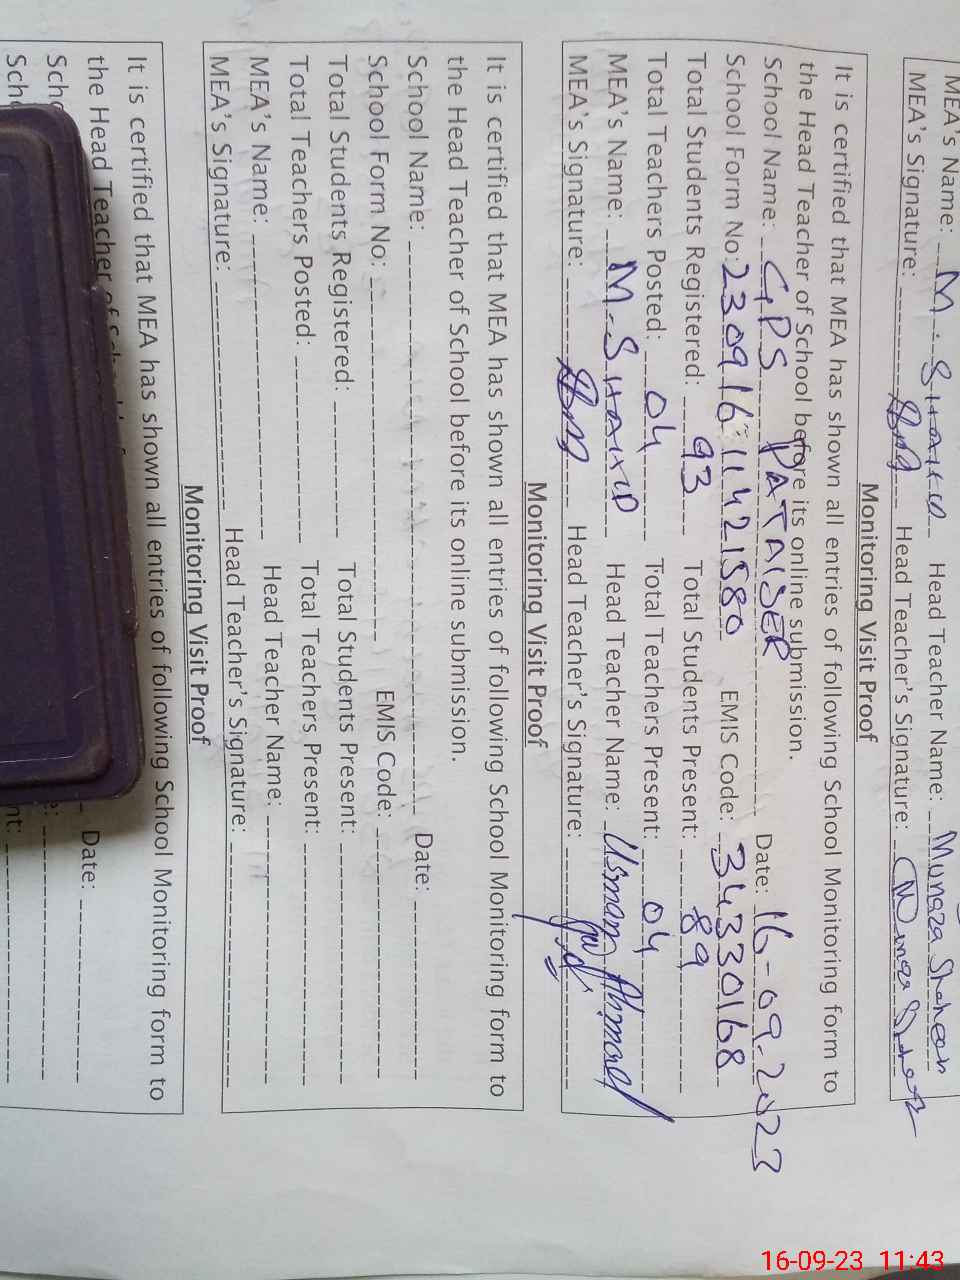 MEA's Name: M. SHAHID Head Teacher Name: Munaza Shaheen
MEA's Signature: Head Teacher's Signature:
Monitoring Visit Proof
It is certified that MEA has shown all entries of following School Monitoring form to
the Head Teacher of School before its online submission.
School Name: GPS PATAISER Date: 16-09-2023
School Form No: 23091611421580 EMIS Code: 34330168
Total Students Registered: 93 Total Students Present: 89
Total Teachers Posted: 04 Total Teachers Present: 04
MEA's Name: M-SHAHID Head Teacher Name: Usman Ahmad
MEA's Signature: Head Teacher's Signature:
Monitoring Visit Proof
It is certified that MEA has shown all entries of following School Monitoring form to
the Head Teacher of School before its online submission.
School Name: Date:
School Form No: EMIS Code:
Total Students Registered: Total Students Present:
Total Teachers Posted: Total Teachers Present:
MEA's Name: Head Teacher Name:
MEA's Signature: Head Teacher's Signature:
Monitoring Visit Proof
It is certified that MEA has shown all entries of following School Monitoring form to
the Head Teacher of
Date:
16-09-23 11:43